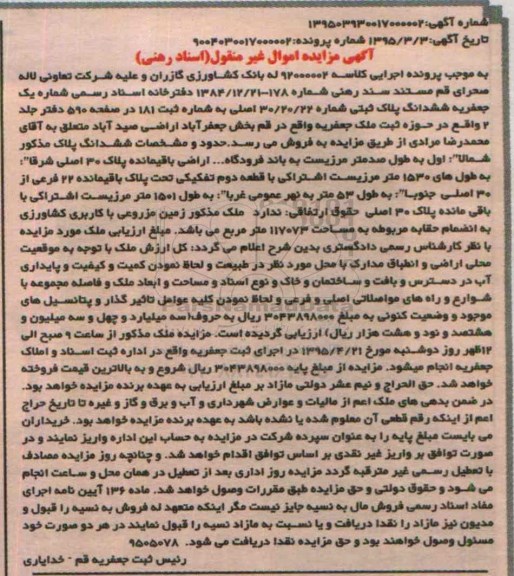 شماره آگهی:139503930017000002
تاریخ آگهی:1395/3/3 شماره پرونده:9004030017000002
آگهی مزایده اموال غیر منقول(اسناد رهنی)
به موجب پرونده اجرایی کلاسه 92000002 له بانک کشاورزی گازران و علیه شرکت تعاونی لاله
صحرای قم مستند سند رهنی شماره 178-1384/12/21 دفترخانه اسناد رسمی شماره یک
جعفریه ششدانگ پلاک ثبتی شماره 30/20/22 اصلی به شماره ثبت 181 در صفحه 590 دفتر جلد
2 واقع در حوزه ثبت ملک جعفریه واقع در قم بخش جعفرآباد اراضی صید آباد متعلق به آقای
محمدرضا مرادی از طریق مزایده به فروش می رسد.حدود و مشخصات ششدانگ پلاک مذکور
شمالا": اول به طول صدمتر مرزیست به باند فرودگاه... اراضی باقیمانده پلاک 30 اصلی شرقا":
به طول های 1530 متر مرزیست اشتراکی با قطعه دوم تفکیکی تحت پلاک باقیمانده 22 فرعی از
30 اصلی جنوبا": به طول 53 متر به نهر عمومی غربا": به طول 1501 متر مرزیست اشتراکی با
باقی مانده پلاک 30 اصلی حقوق ارتفاقی: ندارد ملک مذکور زمین مزروعی با کاربری کشاورزی
به انضمام حقابه مربوطه به مساحت 117073 متر مربع می باشد. مبلغ ارزیابی ملک مورد مزایده
با نظر کارشناس رسمی دادگستری بدین شرح اعلام می گردد: کل ارزش ملک با توجه به موقعیت
محلی اراضی و انطباق مدارک با محل مورد نظر در طبیعت و لحاظ نمودن کمیت و کیفیت و پایداری
آب در دسترس و بافت و ساختمان و خاک و نوع اسناد و مساحت و ابعاد ملک و فاصله مجموعه با
شوارع و راه های مواصلاتی اصلی و فرعی و لحاظ نمودن کلیه عوامل تاثیر گذار و پتانسیل های
موجود و وضعیت کنونی به مبلغ 3043898000 ریال به حروف(سه میلیارد و چهل و سه میلیون و
هشتصد و نود و هشت هزار ریال) ارزیابی گردیده است. مزایده ملک مذکور از ساعت 9 صبح الی
12ظهر روز دوشنبه مورخ 1395/4/21 در اجرای ثبت جعفریه واقع در اداره ثبت اسناد و املاک
جعفریه انجام میشود. مزایده از مبلغ پایه 3043898000 ریال شروع و به بالاترین قیمت فروخته
خواهد شد. حق الحراج و نیم عشر دولتی مازاد بر مبلغ ارزیابی به عهده برنده مزایده خواهد بود.
در ضمن بدهی های ملک اعم از مالیات و عوارض شهرداری و آب و برق و گاز و غیره تا تاریخ حراج
اعم از اینکه رقم قطعی آن معلوم شده یا نشده باشد به عهده برنده مزایده خواهد بود. خریداران
می بایست مبلغ پایه را به عنوان سپرده شرکت در مزایده به حساب این اداره واریز نمایند و در
صورت توافق بر واریز غیر نقدی بر اساس توافق اقدام خواهد شد. و چنانچه روز مزایده مصادف
با تعطیل رسمی غیر مترقبه گردد مزایده روز اداری بعد از تعطیل در همان محل و ساعت انجام
می شود و حقوق دولتی و حق مزایده طبق مقررات وصول خواهد شد. ماده 136 آیین نامه اجرای
مفاد اسناد رسمی فروش مال به نسیه جایز نیست مگر اینکه متعهد له فروش به نسیه را قبول و
مدیون نیز مازاد را نقدا دریافت و یا نسبت به مازاد نسیه را قبول نمایند در هر دو صورت خود
مسئول وصول خواهند بود و حق مزایده نقدا دریافت می شود. 9505078
رئیس ثبت جعفریه قم - خدایاری